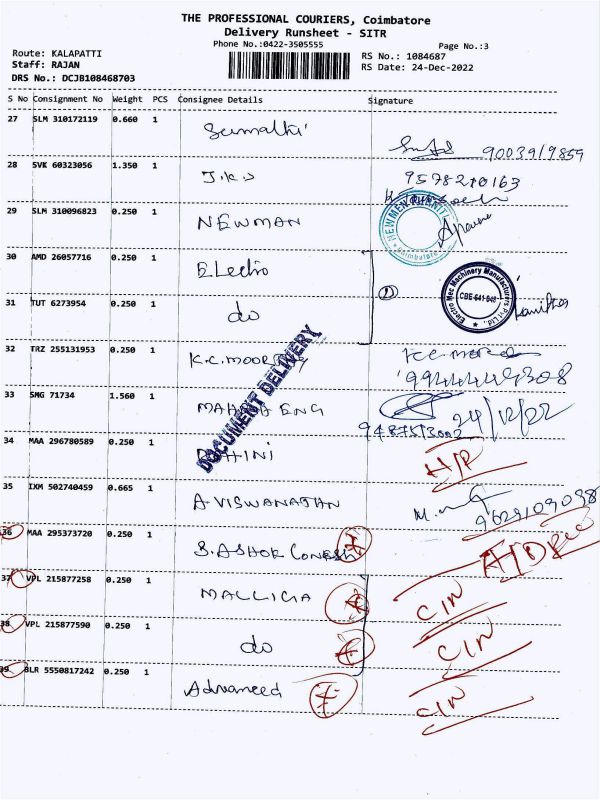 THE PROFESSIONAL COURIERS, Coimbatore
Delivery Runsheet - SITR
Phone No.:0422-3505555 Page No.:3
Route: KALAPATTI RS No.: 1084687
Staff: RAJAN RS Date: 24-Dec-2022
DRS No.: DCJB108468703
S No Consignment No Weight PCS Consignee Details Signature
27 SLM 310172119 0.660 1 Sumathi
9003919859
28 SVK 60323056 1.350 1 J.K.S 9578210163
29 SLM 310096823 0.250 1 NEWMAN
Coimbatore
30 AMD 26057716 0.250 1 Electro
Electro Mec Machinery Manufacturers Pvt Ltd.,
CBE-641 048
31 TUT 6273954 0.250 1 do
32 TRZ 255131953 0.250 1 K.C. MOORING
DOCUMENT DELIVERY
33 SMG 71734 1.560 1 ENG 24/12/22
34 MAA 296780589 0.250 1 ROHINI H/P
35 IXM 502740459 0.665 1 A. VISWANATHAN
9629109098
36 MAA 295373720 0.250 1 S. ASHOK A/D
37 VPL 215877258 0.250 1 MALLIGA C/N
38 VPL 215877590 0.250 1 do C/N
39 BLR 5550817242 0.250 1 Advanced C/N